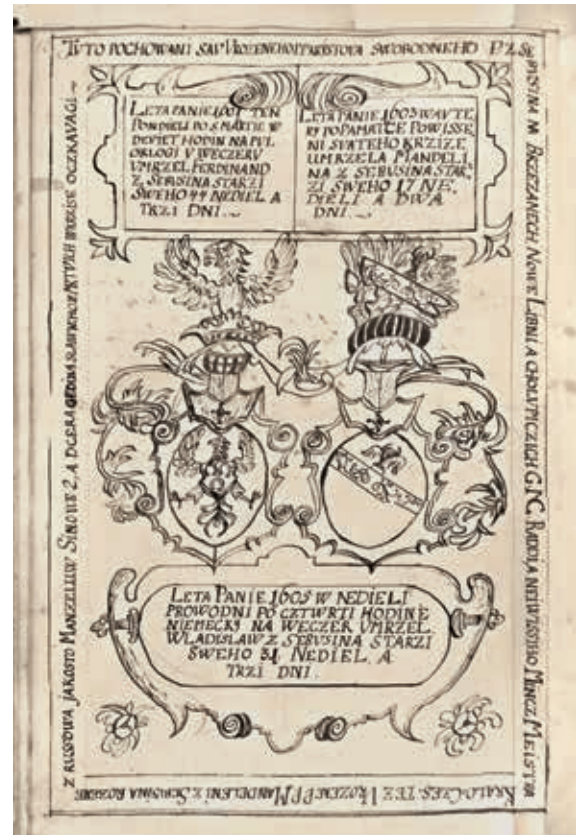 TUTO POCHOWANI SAU UROZENEHO P. PARISTOFA SWOBODNEHO P. Z SE
BUSINA NA BRZEZANECH NOWE LIBNI A CHOLUPICZICH GMC RADDI A NEIWISSIHO MINCZ MEISTRA
KRALO. CZES. TEZ UROZENE P P MANDELENI Z SEBUSINA ROZENE
Z RUSSDWA JAKOSTO MANZELUW SINOWE 2, A DCERA OCZKAVAGI
LETA PANIE 1601 TEN
PONDIELI PO S MARTIE W
DEVIET HODIN NA PUL
ORLOGI V WECZERU
UMRZEL FERDINAND
Z SEBUSINA STARZI
SWEHO 44 NEDIEL A
TRZI DNI
LETA PANIE 1603 W AUTE
RY PO PAMATCE POWISSE
NI SVATEHO KRZIZE
UMRZELA MANDELI
NA Z SEBUSINA STAR
ZI SWEHO 17 NE
DIELI A DWA
DNI
LETA PANIE 1605 W NEDIELI
PROWODNI PO CZTWRTI HODINE
NIEMECKY NA WECZER UMRZEL
WLADISLAW Z SEBUSINA STARZI
SWEHO 31 NEDIEL A
TRZI DNI.